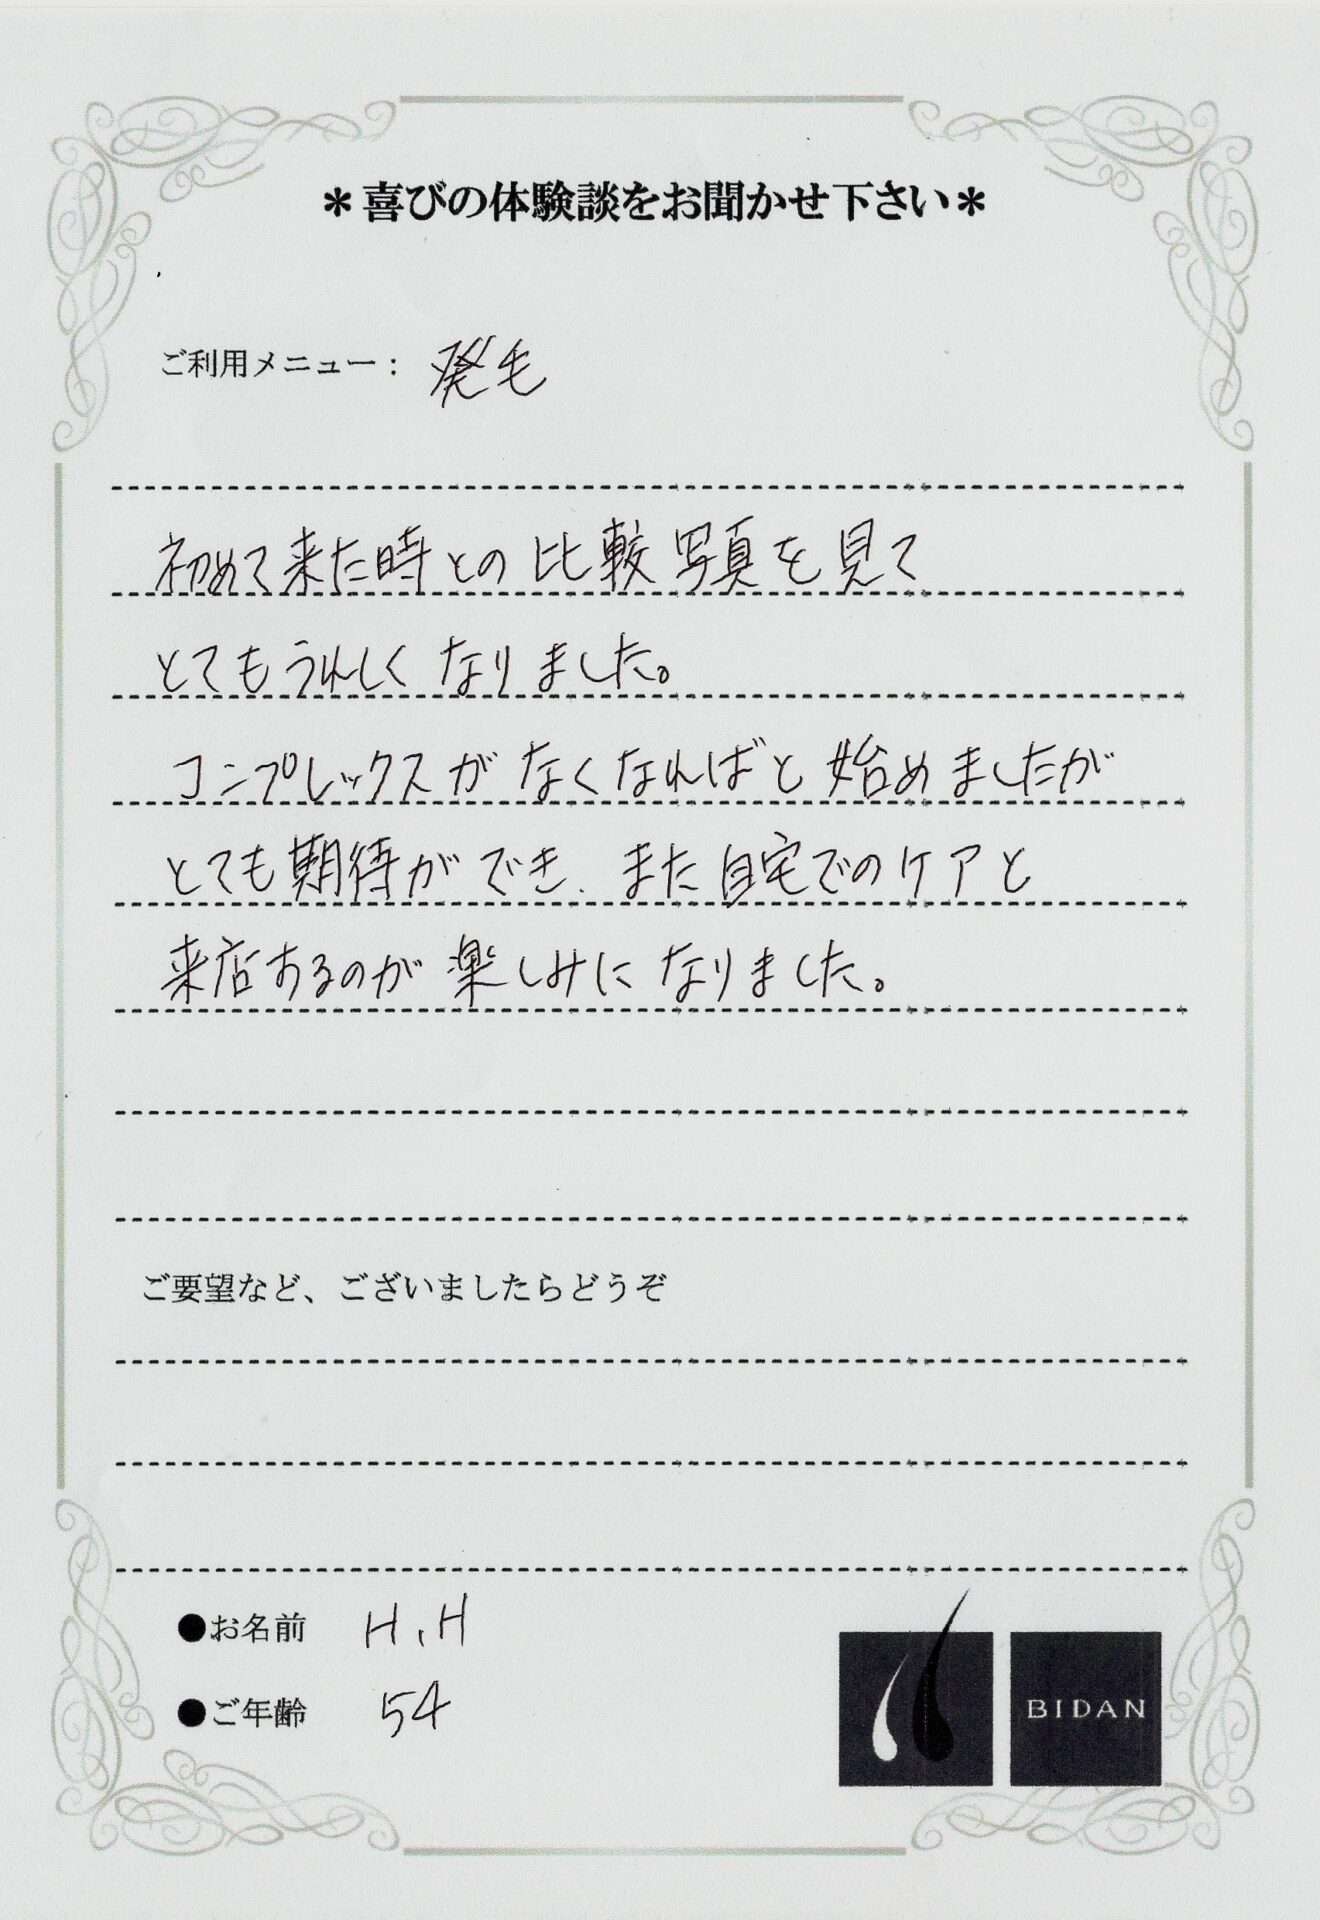 ＊喜びの体験談をお聞かせ下さい＊
ご利用メニュー： 発毛
初めて来た時との比較写真を見て
とてもうれしくなりました。
コンプレックスがなくなればと始めましたが
とても期待ができ、また自宅でのケアと
来店するのが楽しみになりました。
ご要望など、ございましたらどうぞ
●お名前 H.H
●ご年齢 54
BIDAN